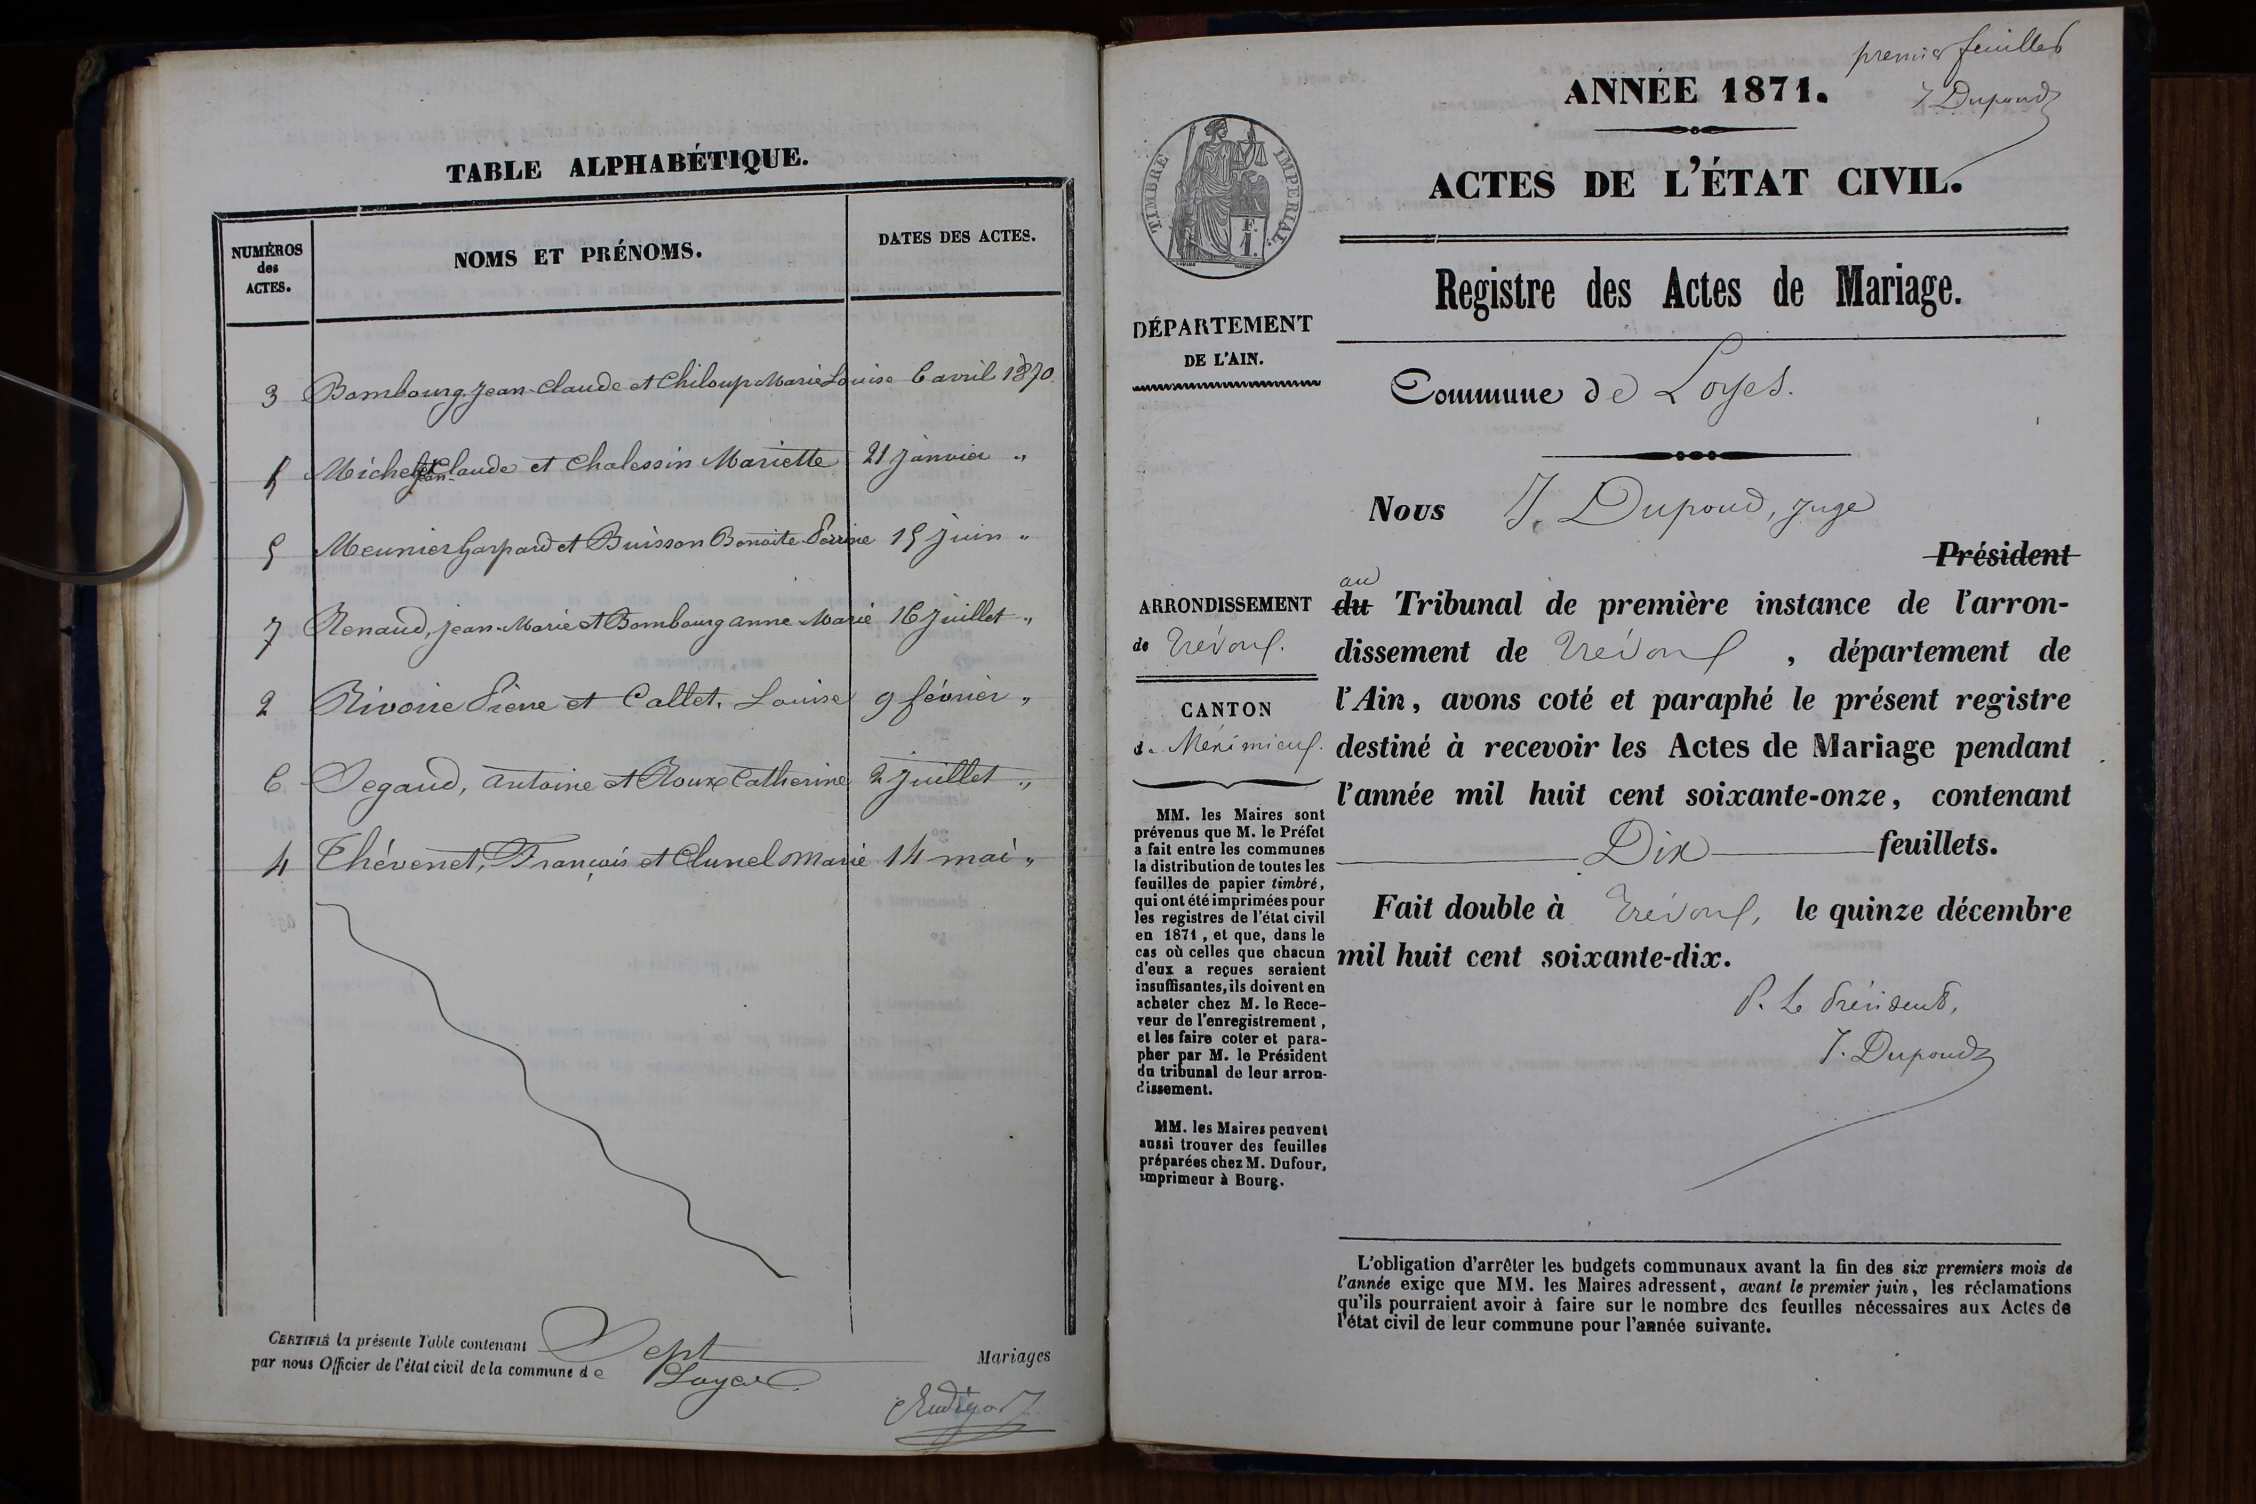 TABLE ALPHABÉTIQUE.
NUMÉROS
des
ACTES.
NOMS ET PRÉNOMS.
DATES DES ACTES.
3 Bombourg Jean-Claude et Chiloup Marie Louise 6 avril 1870
Michel Jean-Claude et Chalessin Mariette 21 janvier "
5 Meunier Gaspard et Buisson Benoite Perrine 15 juin "
7 Renaud, jean-Marie et Bombourg anne-Marie 16 juillet "
2 Rivoire Pierre et Callet, Louise 9 février "
6 Segaud, antoine et Roux Catherine 2 juillet "
4 Thévenet, François et Clunel Marie 14 mai "
CERTIFIÉ la présente Table contenant Sept Mariages
par nous Officier de l'état civil de la commune de Loyes
premier feuillet
J. Dupoud
ANNÉE 1871.
ACTES DE L'ÉTAT CIVIL.
TIMBRE IMPERIAL.
F.
1.
Registre des Actes de Mariage.
DÉPARTEMENT
DE L'AIN.
Commune de Loyes.
Nous J. Dupoud, juge
Président
au
ARRONDISSEMENT
de Trévoux.
CANTON
de Méximieux.
du Tribunal de première instance de l'arron-
dissement de Trévoux, département de
l'Ain, avons coté et paraphé le présent registre
destiné à recevoir les Actes de Mariage pendant
l'année mil huit cent soixante-onze, contenant
Dix feuillets.
Fait double à Trévoux, le quinze décembre
mil huit cent soixante-dix.
P. Le Président,
J. Dupoud
MM. les Maires sont
prévenus que M. le Préfet
a fait entre les communes
la distribution de toutes les
feuilles de papier timbré,
qui ont été imprimées pour
les registres de l'état civil
en 1871, et que, dans le
cas où celles que chacun
d'eux a reçues seraient
insuffisantes, ils doivent en
acheter chez M. le Rece-
veur de l'enregistrement,
et les faire coter et para-
pher par M. le Président
du tribunal de leur arron-
dissement.
MM. les Maires peuvent
aussi trouver des feuilles
préparées chez M. Dufour,
imprimeur à Bourg.
L'obligation d'arrêter les budgets communaux avant la fin des six premiers mois de
l'année exige que MM. les Maires adressent, avant le premier juin, les réclamations
qu'ils pourraient avoir à faire sur le nombre des feuilles nécessaires aux Actes de
l'état civil de leur commune pour l'année suivante.